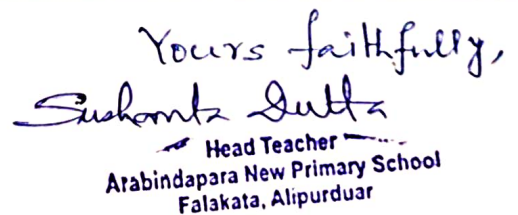 Yours faithfully,
Sushanta Dutta
Head Teacher
Arabindapara New Primary School
Falakata, Alipurduar